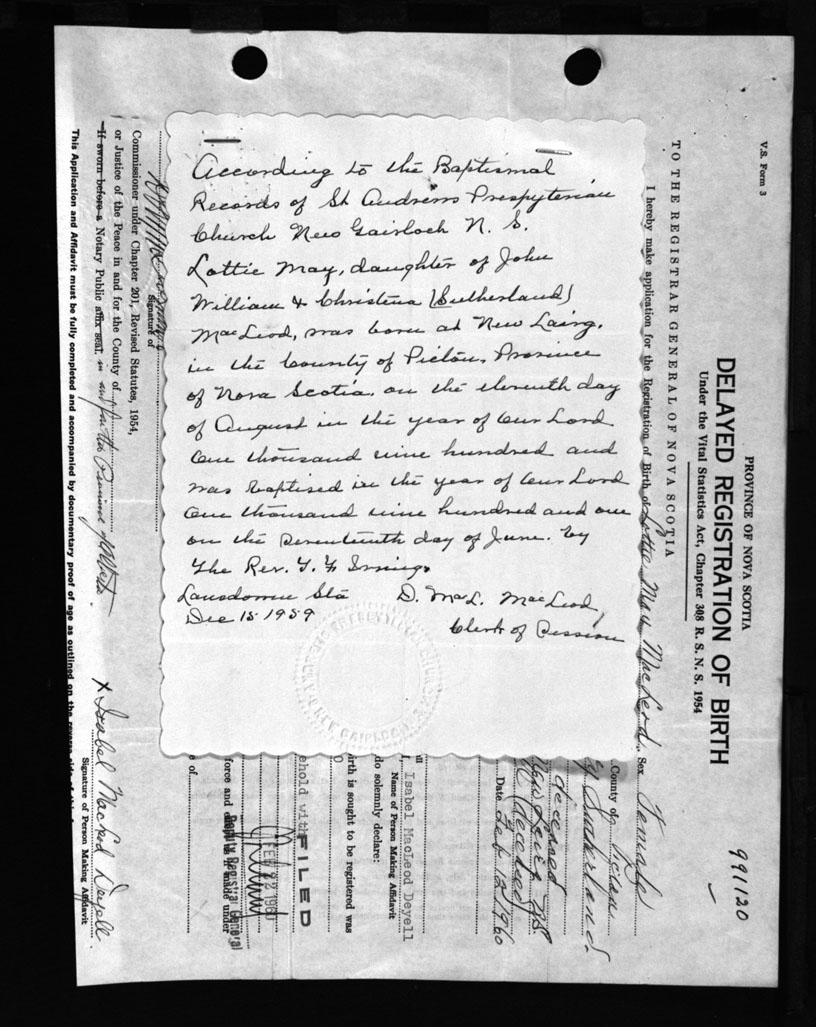 According to the Baptismal
Records of St Andrews Presbyterian
Church New Gairloch N. S.
Lottie May, daughter of John
William & Christena (Sutherland)
MacLeod, was born at New Lairg,
in the County of Pictou, Province
of Nova Scotia, on the eleventh day
of August in the year of Our Lord
One thousand nine hundred and
was baptised in the year of Our Lord
One thousand nine hundred and one
on the seventeenth day of June. by
The Rev.
Lansdowne Sta D. MacL. MacLeod,
Dec 15-1959 Clerk of Session
V.S. Form 3
PROVINCE OF NOVA SCOTIA
DELAYED REGISTRATION OF BIRTH
Under the Vital Statistics Act, Chapter 308 R. S. N. S. 1954
991120
TO THE REGISTRAR GENERAL OF NOVA SCOTIA
I hereby make application for the Registration of Birth of Lottie May MacLeod Sex Female
County of Pictou
Sutherland
deceased
deceased
Date Feb 12 1960
I, Isabel MacLeod Deyell
Name of Person Making Affidavit
do solemnly declare:
irth is sought to be registered was
ehold with
FILED
FEB 22 1960
Deputy Registrar General
force and
made under
e of
Signature of
Commissioner under Chapter 201, Revised Statutes, 1954,
or Justice of the Peace in and for the County of
If sworn before a Notary Public affix seal. in and for the Province of Alberta.
X Isabel MacLeod Deyell.
Signature of Person Making Affidavit
This Application and Affidavit must be fully completed and accompanied by documentary proof of age as outlined on the reverse side of